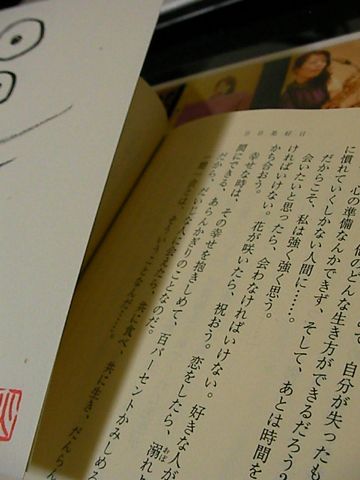 日日是好日
自分が失ったも
他のどんな生き方ができるだろう?
の準備なんかできず、そして、あとは時間を
に慣れていくしかない人間に……。
だからこそ、私は強く強く思う。
会いたいと思ったら、会わなければいけない。好きな人が
ければいけない。花が咲いたら、祝おう。恋をしたら、溺れ
かち合おう。
幸せな時は、その幸せを抱きしめて、百パーセントかみしめ
間にできる、あらんかぎりのことなのだ。
だから、だいじな人に 共に食べ、共に生き、だんらん
一期一会とは、そういうことなんだ……。